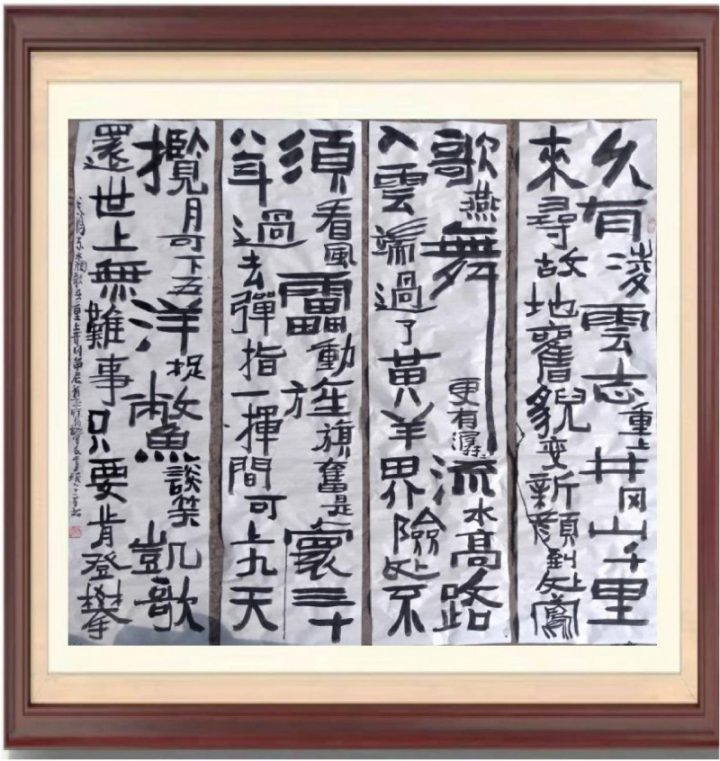 久有凌雲志重上井冈山千里
來尋故地舊貌变新顏到处鶯
歌燕舞更有潺々流水高路
入雲端過了黄羊界險处不
須看風靁動旌旗奮是寰三十
八年過去彈指一揮間可上九天
攬月可下五洋捉鱉談笑凱歌
還世上無難事只要肯登攀